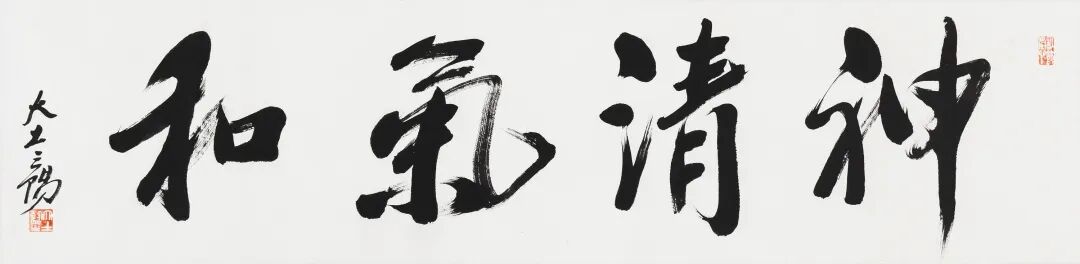 神清氣和
大土三陽